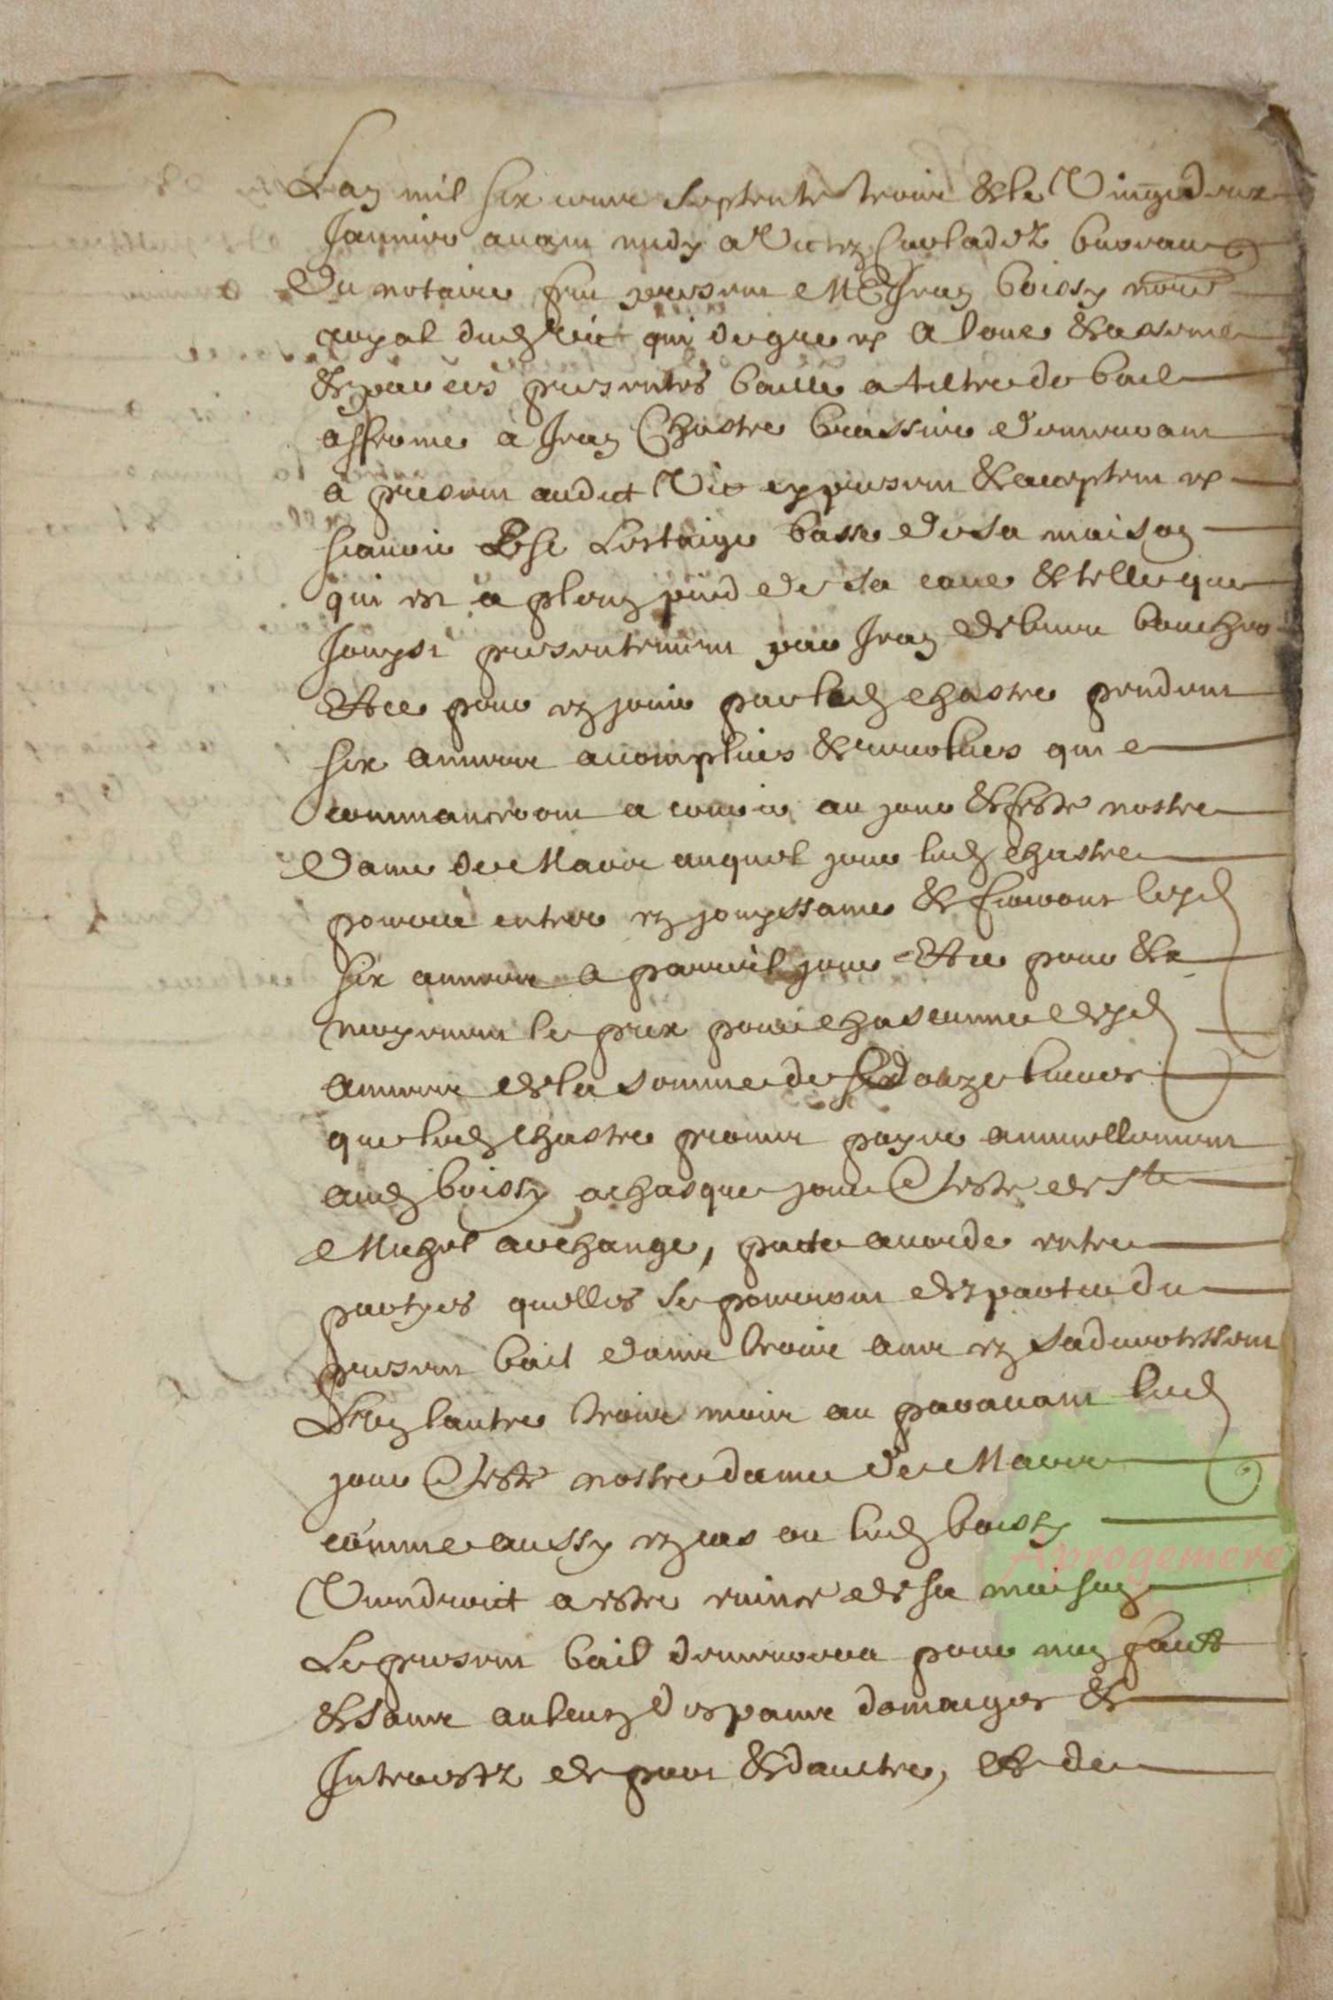 Lan mil six cens septente trois & le vingt deux
Janvier avant midy a Vic en Carladez
du notaire feut present Me Jean Boissy no.re
royal dud Vic qui de gre &c a loué & assense
& par ces presentes baille a tiltre de bail
afferme a Jean Chastre brassier demeurant
a present audict Vic cy present & acceptent &c
scavoir est lestaige basse de sa maison
qui est a plein pied de sa cave & telle que
jouyst presentement par Jean boucher
& ce pour en jouir par led chastre pendent
six annees accomplies & revolues qui
commanceront a courir au jour & feste nostre
dame de Mars auquel jour led chastre
pourra entrer en jouyssance & finiront lesd
six annees a pareil jour & ce pour &
moyenent le prix pour chascunne desd
annees de la somme de douze livres
que led chastre promet payer annuellement
aud boissy a chasque jour & feste de St
Michel archange, pacte accorde entre
partyes quelles se pourront despartir du
present bail dans trois ans en sadvertissent
lung lautre trois mois au paravant led
jour & feste nostre dame de Mars
comme aussy en cas ou led boissy
viendroict a estre evincé de sa maison
le present bail demeurera pour non faict
& sans aulcung despans domaiges &
interestz de part & dautre, & de
Aprogemere